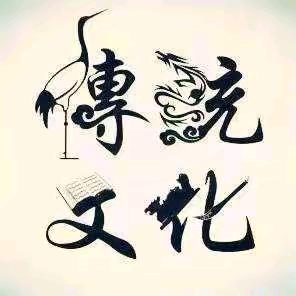 傳統
文化